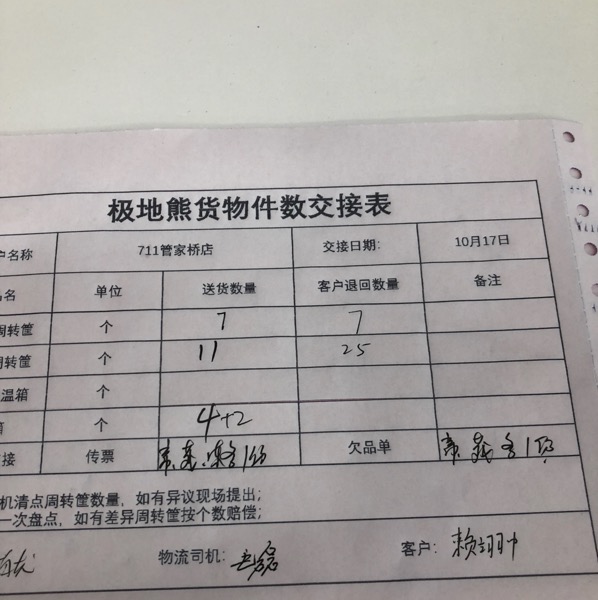 极地熊货物件数交接表
户名称 711管家桥店 交接日期: 10月17日
名 单位 送货数量 客户退回数量 备注
周转筐 个 7 7
周转筐 个 11 25
温箱 个
箱 个 4+2
接 传票 欠品单
机清点周转筐数量，如有异议现场提出;
一次盘点，如有差异周转筐按个数赔偿;
物流司机: 客户: